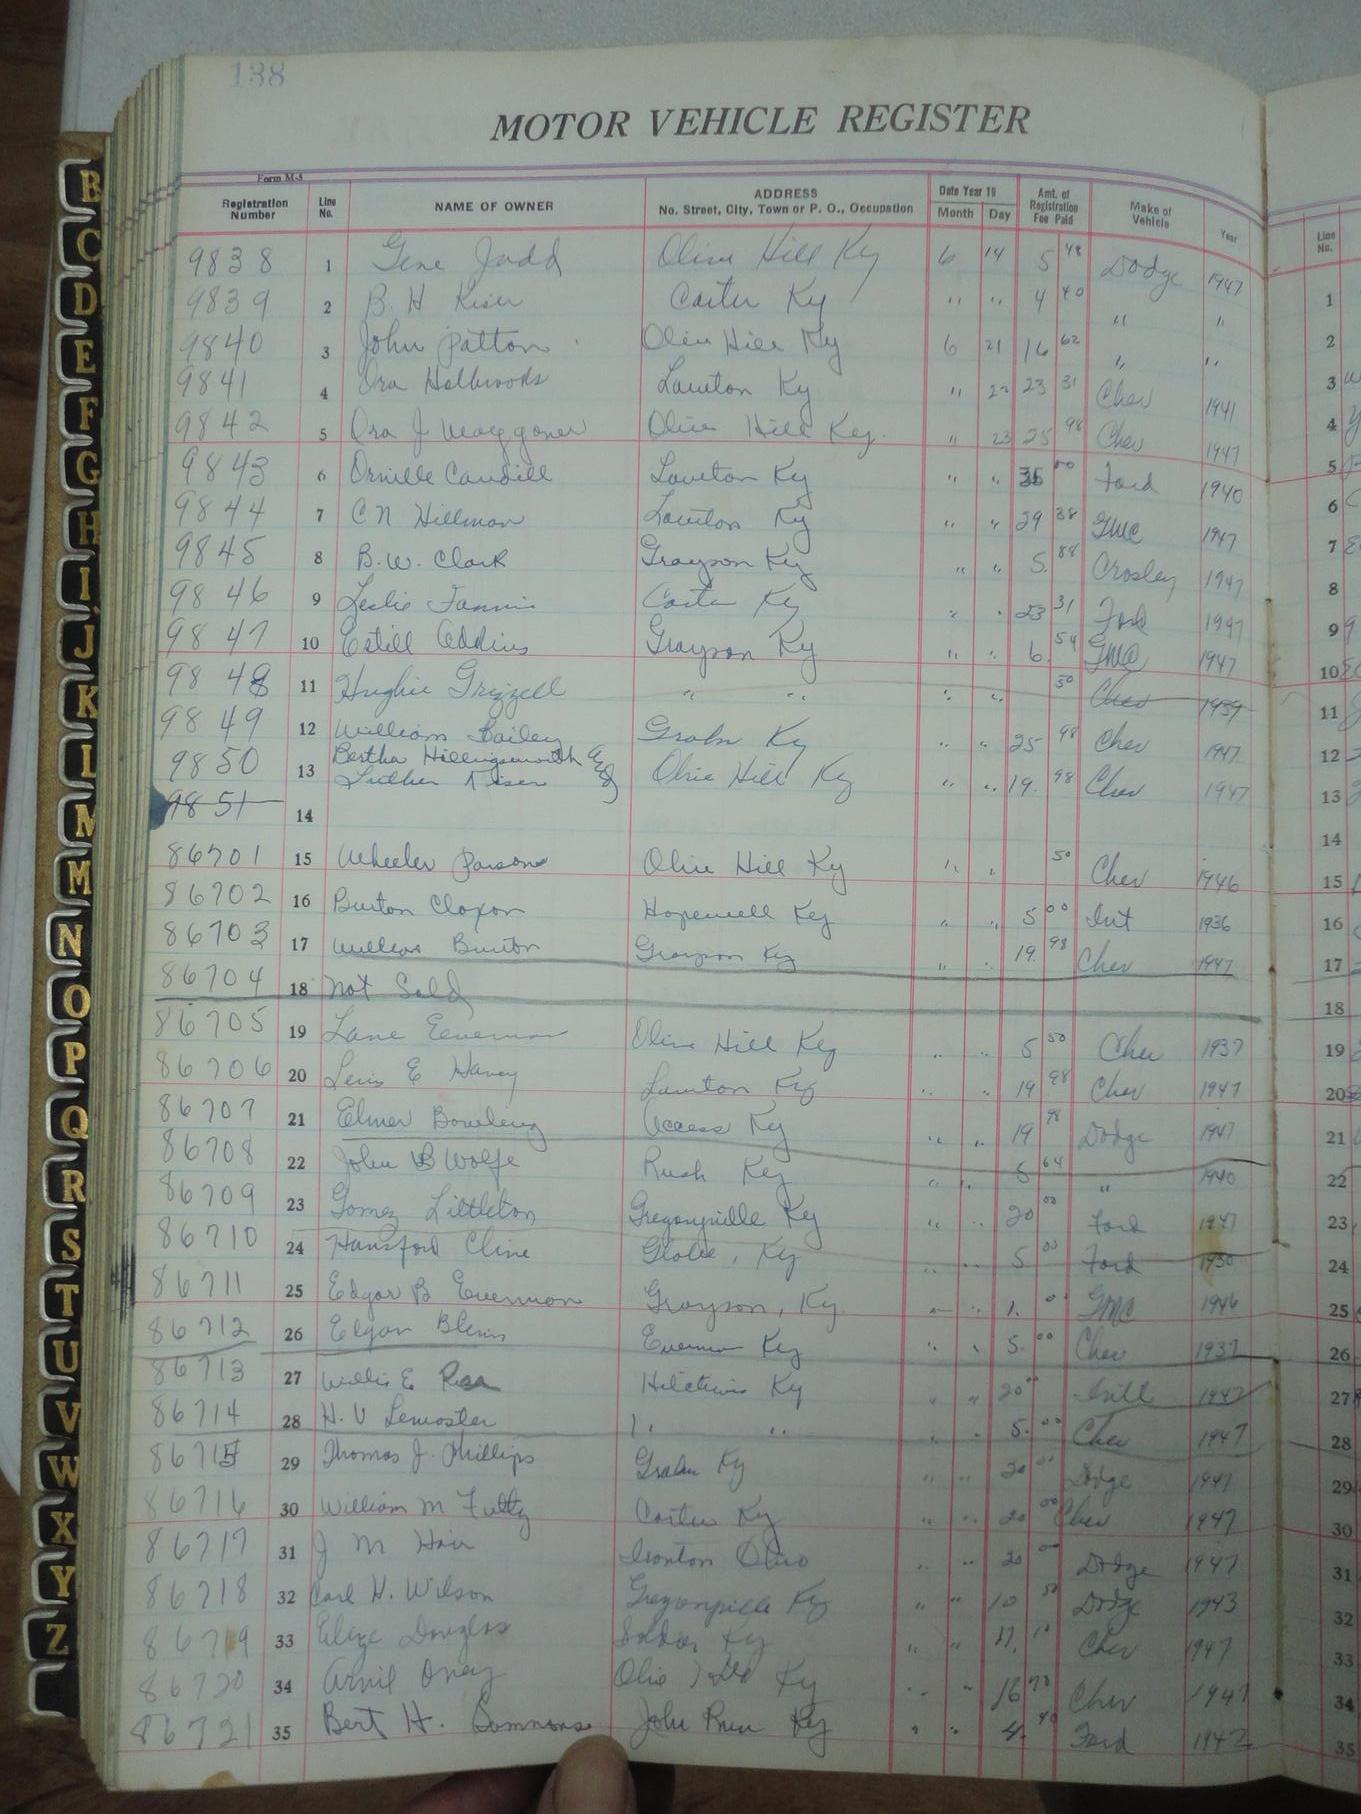 138
MOTOR VEHICLE REGISTER
Form M-5
Registration Number Line No. NAME OF OWNER ADDRESS No. Street, City, Town or P. O., Occupation Date Year 19 Month Day Amt. of Registration Fee Paid Make of Vehicle Year
9838 1 Gene Jadd Olive Hill Ky 6 14 5 48 Dodge 1947
9839 2 B. H Kiser Carter Ky " " 4 40 " "
9840 3 John Patton Olive Hill Ky 6 21 16 62 " "
9841 4 Ora Holbrooks Lawton Ky " 23 31 Chev 1941
9842 5 Ora J Waggoner Olive Hill Ky. " 23 25 98 Chev 1947
9843 6 Orville Caudill Lawton Ky " " 00 Ford 1940
9844 7 C N Hillman Lawton Ky " " 29 38 GMC 1947
9845 8 B. W. Clark Grayson Ky " " 5. 88 Crosley 1947
9846 9 Leslie Fannin Carter Ky " " 23 31 Ford 1947
9847 10 Estill Addins Grayson Ky " " 6. 54 GMC 1947
9848 11 Hughie Grizzell " " " " 50 Chev 1939
9849 12 William Bailey Grahn Ky " " 25 98 Chev 1947
9850 13 Bertha Hillingsworth & Luther Kiser Olive Hill Ky " " 19. 98 Chev 1947
9851 14
86701 15 Wheeler Parsons Olive Hill Ky " " 50 Chev 1946
86702 16 Burton Claxon Hopewell Ky " " 5 00 Int 1936
86703 17 William Burton Grayson Ky " " 19. 98 Chev 1947
86704 18 Not Sold
86705 19 Lane Everman Olive Hill Ky " " 5 50 Chev 1937
86706 20 Lewis E Haney Lawton Ky " " 19 98 Chev 1947
86707 21 Elmer Bowling Access Ky " " 19 98 Dodge 1947
86708 22 John B Wolfe Rush Ky " " 5 64 " 1940
86709 23 Gomez Littleton Gregoryville Ky " " 20 00 Ford 1947
86710 24 Hansford Cline Globe, Ky " " 5 00 Ford 1930
86711 25 Edgar B Everman Grayson, Ky " " 1. 00 GMC 1946
86712 26 Elgan Blevins Everman Ky " " 5. 00 Chev 1937
86713 27 Willis E Hitchins Ky " " 20 00 1947
86714 28 H. V Lemaster " " " " 5. 00 Chev 1947
86715 29 Thomas J. Phillips Grahn Ky " " 20 00 Dodge 1947
86716 30 William M Fultz Carter Ky " " 20 00 Chev 1947
86717 31 J M Hair Ironton Ohio " " 20 00 Dodge 1947
86718 32 Carl H. Wilson Gregoryville Ky " " 10 50 Dodge 1943
86719 33 Douglas Soldier Ky " " Chev 1947
86720 34 Arvil Oney Olive Hill Ky " " 16 Chev 1947
86721 35 Bert H. Sammons John Run Ky " " 4. 40 Ford 1942
B
C
D
E
F
G
H
I
J
K
L
M
M
N
O
P
Q
R
S
T
U
V
W
X
Y
Z
Line No.
1
2
3
4
5
6
7
8
9
10
11
12
13
14
15
16
17
18
19
20
21
22
23
24
25
26
27
28
29
30
31
32
33
34
35